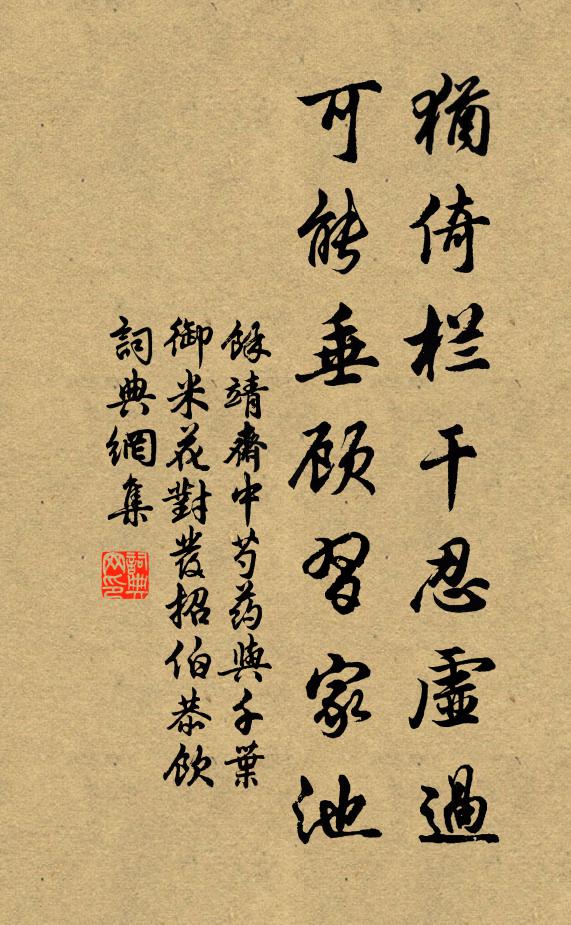 猶倚栏干忍虛過
可能垂顾習家池
餘靖齋中芍药與千葉
御米花對發招伯恭飲
詞典網集
詞典網印